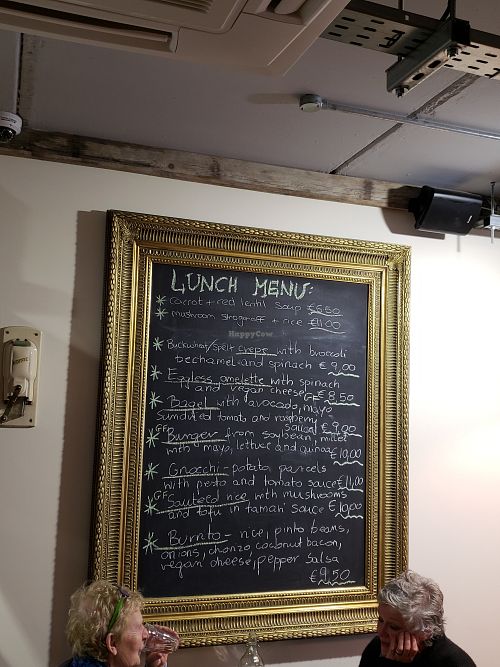 LUNCH MENU:
* Carrot + red lentil soup €6.50
* mushroom stroganoff + rice €11.00
HappyCow
* Buckwheat/Spelt creps with broccoli
bechamel and spinach € 9,00
* Eggless omelette with spinach
and vegan cheese GF € 8,50
* Bagel with avocado, mayo
sundried tomato and raspberry
sauce € 9.00
* GF Burger from soybean, millet
with mayo, lettuce and quinoa
€ 10,00
* Gnocchi- potato parcels
with pesto and tomato sauce €11,00
* GF Sauteed rice with mushrooms
and tofu in tamari sauce €10,00
* Burrito - rice, pinto beans,
onions, chorizo, coconut bacon,
vegan cheese, pepper salsa
€9.50